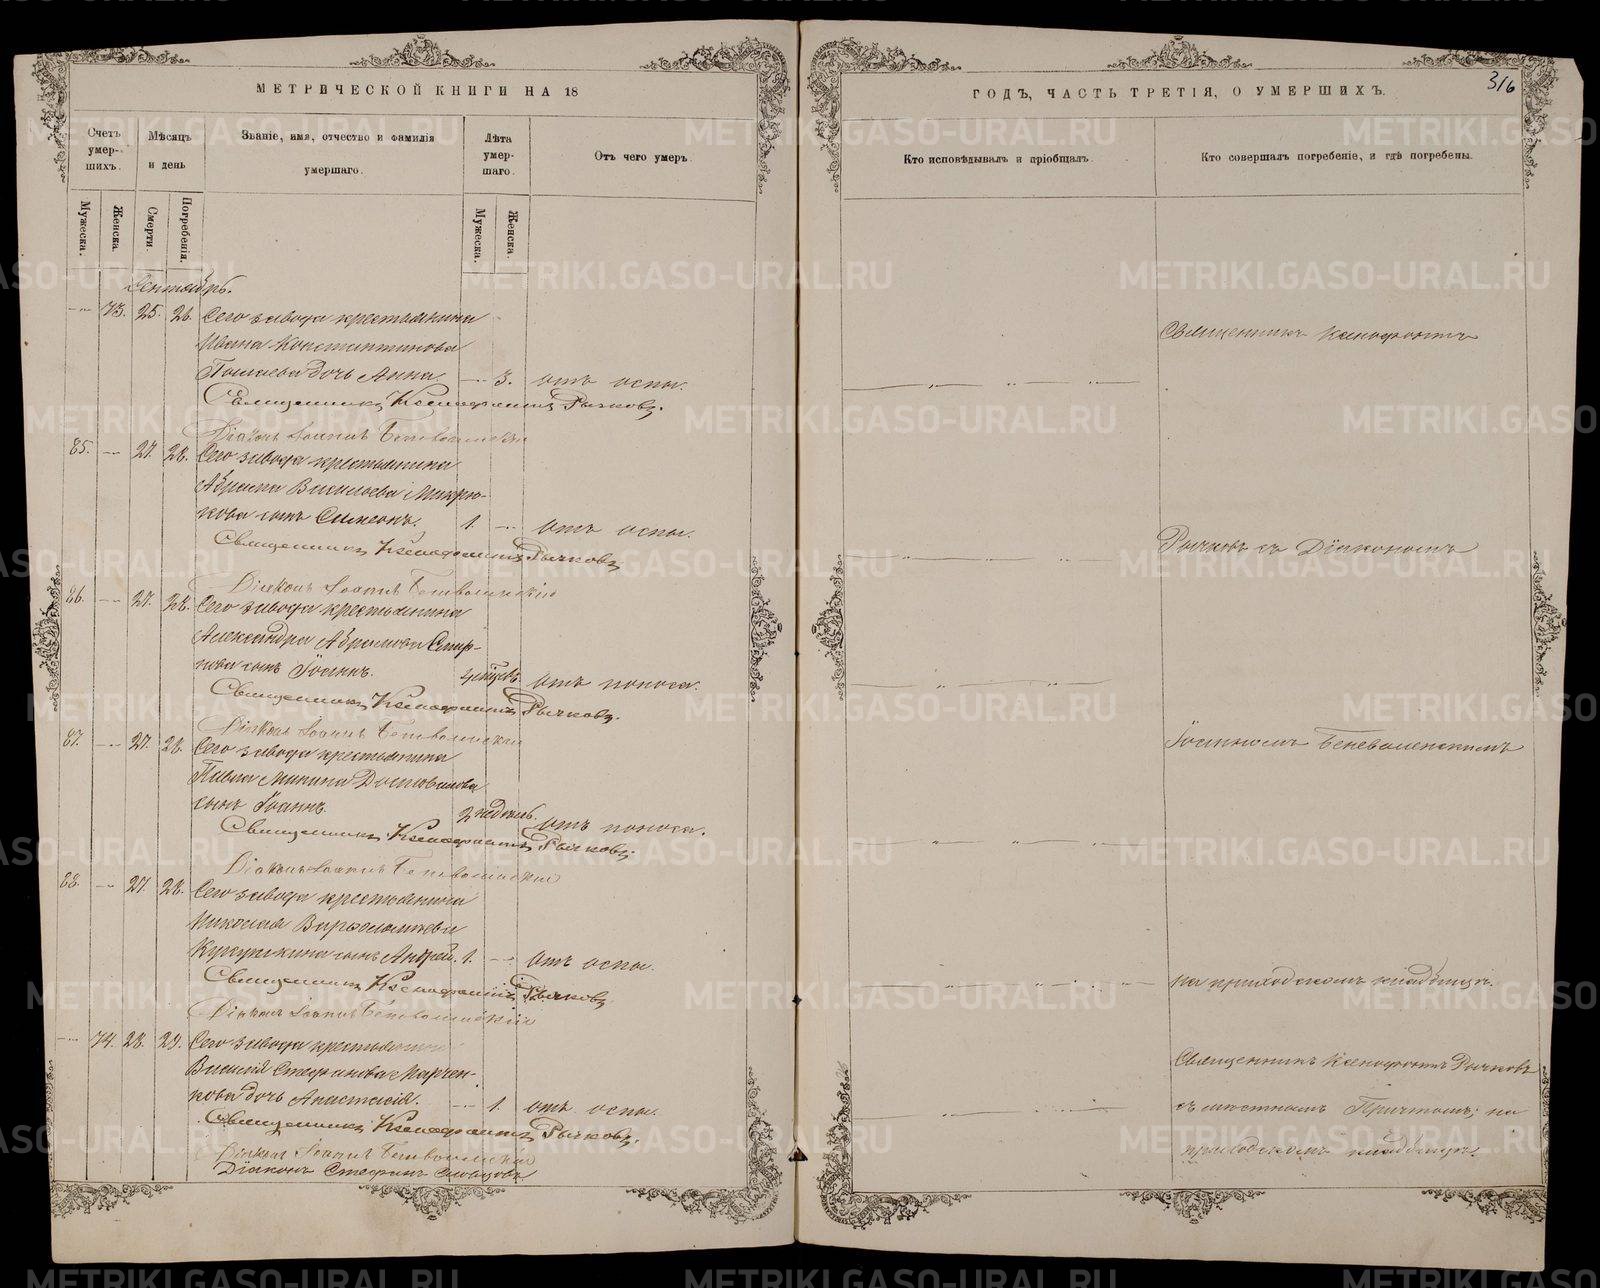 МЕТРИЧЕСКОЙ КНИГИ НА 18
Счетъ умер-шихъ.
Мѣсяцъ и день
Званіе, имя, отчество и фамилія умершаго.
Лѣта умер-шаго.
Отъ чего умеръ
Мужеска.
Женска.
Смерти.
Погребенія.
Мужеска.
Женска.
Сентябрь.
73. 25. 26. Сего завода крестьянина
Ивана Константинова
дочь Анна. 3. отъ оспы.
Священникъ Ксенофонтъ Рычковъ.
Діаконъ Іоаннъ Беневоленскій
85. 27. 28. Сего завода крестьянина
Абрама Васильева Микрю-
кова сынъ Симеонъ. 1. отъ оспы.
Священникъ Ксенофонтъ Рычковъ
Діаконъ Іоаннъ Беневоленскій
86. 27. 28. Сего завода крестьянина
Александра Абрамова Смир-
нова сынъ Іоаннъ. отъ поноса.
Священникъ Ксенофонтъ Рычковъ.
Діаконъ Іоаннъ Беневоленскій
87. 27. 28. Сего завода крестьянина
Павла Минина Достовалова
сынъ Іоаннъ. 2 недѣль. отъ поноса.
Священникъ Ксенофонтъ Рычковъ.
Діаконъ Іоаннъ Беневоленскій
88. 27. 28. Сего завода крестьянина
Николая Варѳоломѣева
сынъ Андрей. 1. отъ оспы.
Священникъ Ксенофонтъ Рычковъ
Діаконъ Іоаннъ Беневоленскій
74. 28. 29. Сего завода крестьянина
Василія Стефанова Марчен-
кова дочь Анастасія. 1. отъ оспы.
Священникъ Ксенофонтъ Рычковъ.
Діаконъ Іоаннъ Беневоленскій
Діаконъ Стефанъ Словцовъ
ГОДЪ, ЧАСТЬ ТРЕТІЯ, О УМЕРШИХЪ.
316
Кто исповѣдывалъ и пріобщалъ.
Кто совершалъ погребеніе, и гдѣ погребены.
Священникъ Ксенофонтъ
Рычковъ съ Діакономъ
Іоанномъ Беневоленскимъ
на приходскомъ кладбищѣ.
Священникъ Ксенофонтъ Рычковъ
съ мѣстнымъ Причтомъ; на
приходскомъ кладбищѣ.
METRIKI.GASO-URAL.RU